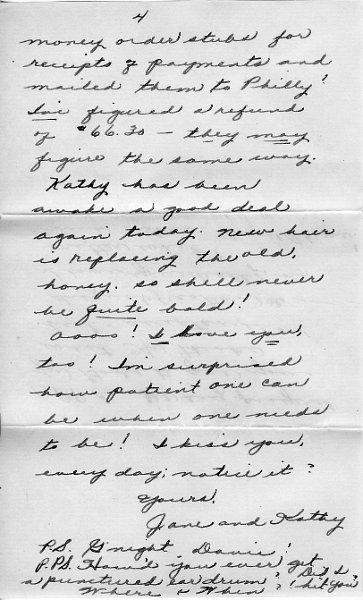 4
money order stubs for
receipts & payments and
mailed them to Philly!
I've figured a refund
of $66.30 — they may
figure the same way.
Kathy has been
awake a good deal
again today. New hair
is replacing the old,
honey. so she'll never
be quite bald!
Oooo! I love you,
too! I'm surprised
how patient one can
be when one needs
to be! I kiss you,
every day; notice it?
Yours,
Jane and Kathy
P.S. G'night, Davie!
P.P.S. How'd you ever get
a punctured ear drum? Did I
Where & When? hit you?